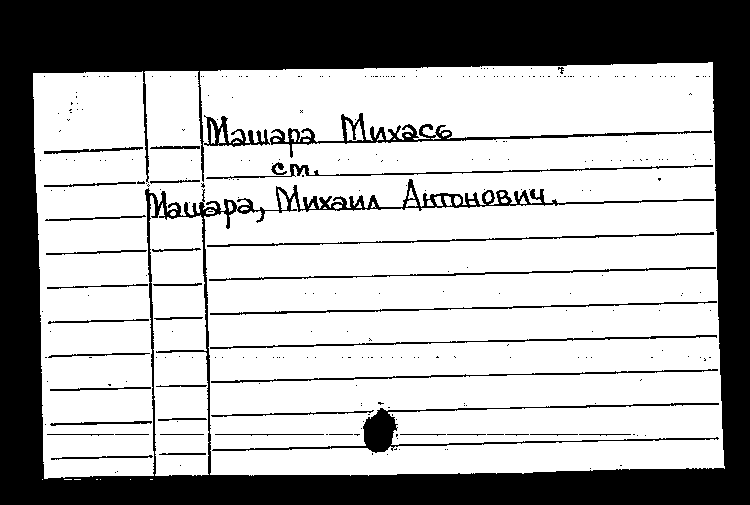 Машара Михась
ст.
Машара, Михаил Антонович.